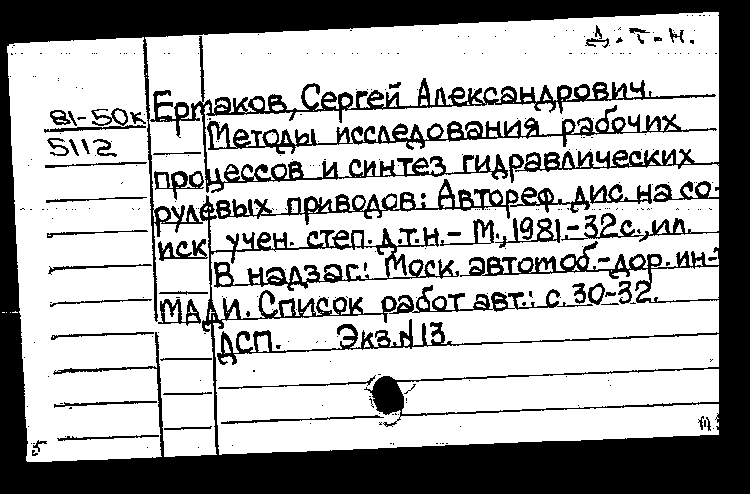 Д.-Т.-Н.
81-50к
5112
Ертаков, Сергей Александрович.
Методы исследования рабочих
процессов и синтез гидравлических
рулевых приводов: Автореф. дис. на со-
иск учен. степ. д.т.н.- М., 1981.-32с., ил.
В надзаг.: Моск. автомоб.-дор. ин-т
МАДИ. Список работ авт.: с. 30-32.
ДСП. Экз.N13.